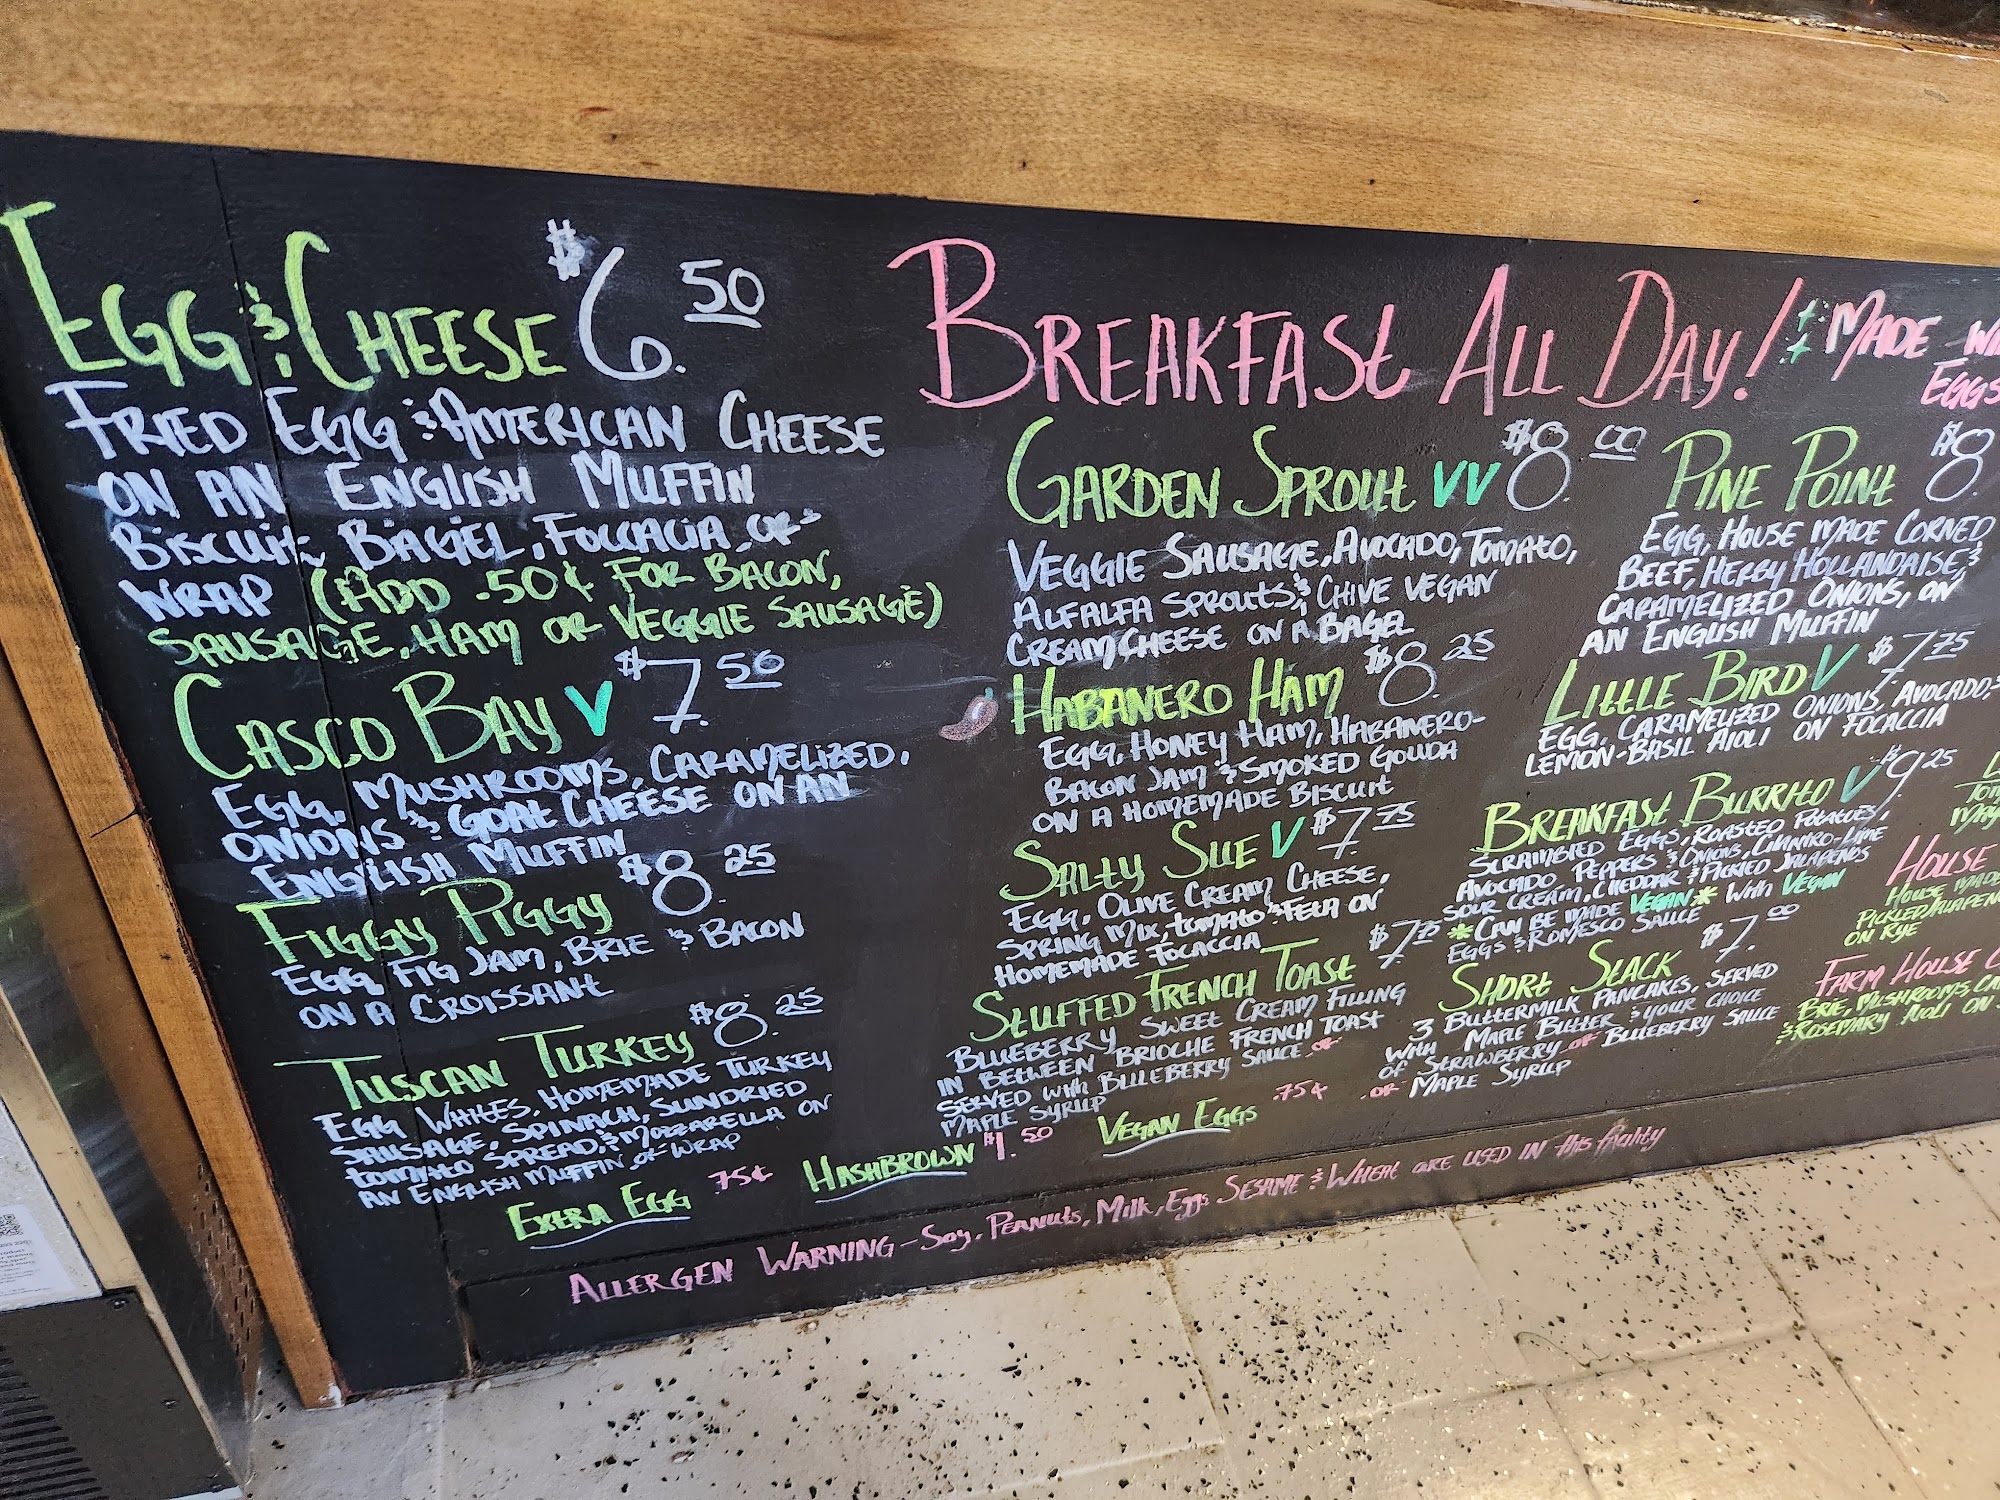 EGG & CHEESE $6.50
FRIED EGG & AMERICAN CHEESE
ON AN ENGLISH MUFFIN
BISCUIT, BAGEL, FOCCACIA, OR
WRAP (ADD .50¢ FOR BACON,
SAUSAGE, HAM OR VEGGIE SAUSAGE)
CASCO BAY V $7.50
EGG, MUSHROOMS, CARAMELIZED,
ONIONS & GOAT CHEESE ON AN
ENGLISH MUFFIN
FIGGY PIGGY $8.25
EGG, FIG JAM, BRIE & BACON
ON A CROISSANT
TUSCAN TURKEY $8.25
EGG WHITES, HOMEMADE TURKEY
SAUSAGE, SPINACH, SUNDRIED
TOMATO SPREAD, & MOZZARELLA ON
AN ENGLISH MUFFIN OR WRAP
EXTRA EGG .75¢
HASHBROWN $1.50
VEGAN EGGS .75¢
BREAKFAST ALL DAY! MADE
EGGS
GARDEN SPROUT VV $8.00
VEGGIE SAUSAGE, AVOCADO, TOMATO,
ALFALFA SPROUTS, & CHIVE VEGAN
CREAM CHEESE ON A BAGEL
HABANERO HAM $8.25
EGG, HONEY HAM, HABANERO-
BACON JAM & SMOKED GOUDA
ON A HOMEMADE BISCUIT
SALTY SUE V $7.75
EGG, OLIVE CREAM CHEESE,
SPRING MIX, TOMATO & FETA ON
HOMEMADE FOCACCIA
STUFFED FRENCH TOAST $7.75
BLUEBERRY SWEET CREAM FILLING
IN BETWEEN BRIOCHE FRENCH TOAST
SERVED WITH BLUEBERRY SAUCE OR
MAPLE SYRUP
PINE POINT $8.
EGG, HOUSE MADE CORNED
BEEF, HERBY HOLLANDAISE, &
CARAMELIZED ONIONS, ON
AN ENGLISH MUFFIN
LITTLE BIRD V $7.75
EGG, CARAMELIZED ONIONS, AVOCADO, &
LEMON-BASIL AIOLI ON FOCACCIA
BREAKFAST BURRITO V $9.25
SCRAMBLED EGGS, ROASTED POTATOES,
AVOCADO, PEPPERS & ONIONS, CILANTRO-LIME
SOUR CREAM, CHEDDAR & PICKLED JALAPENOS
*CAN BE MADE VEGAN* WITH VEGAN
EGGS & ROMESCO SAUCE
SHORT STACK $7.00
3 BUTTERMILK PANCAKES, SERVED
WITH MAPLE BUTTER & YOUR CHOICE
OF STRAWBERRY OR BLUEBERRY SAUCE
OR MAPLE SYRUP
HOUSE
HOUSE MADE
PICKLED JALAPENO
ON RYE
FARM HOUSE
BRIE, MUSHROOMS,
& ROSEMARY AIOLI ON
ALLERGEN WARNING - Soy, PEANUTS, Milk, Eggs SESAME & WHEAT ARE USED IN this facility